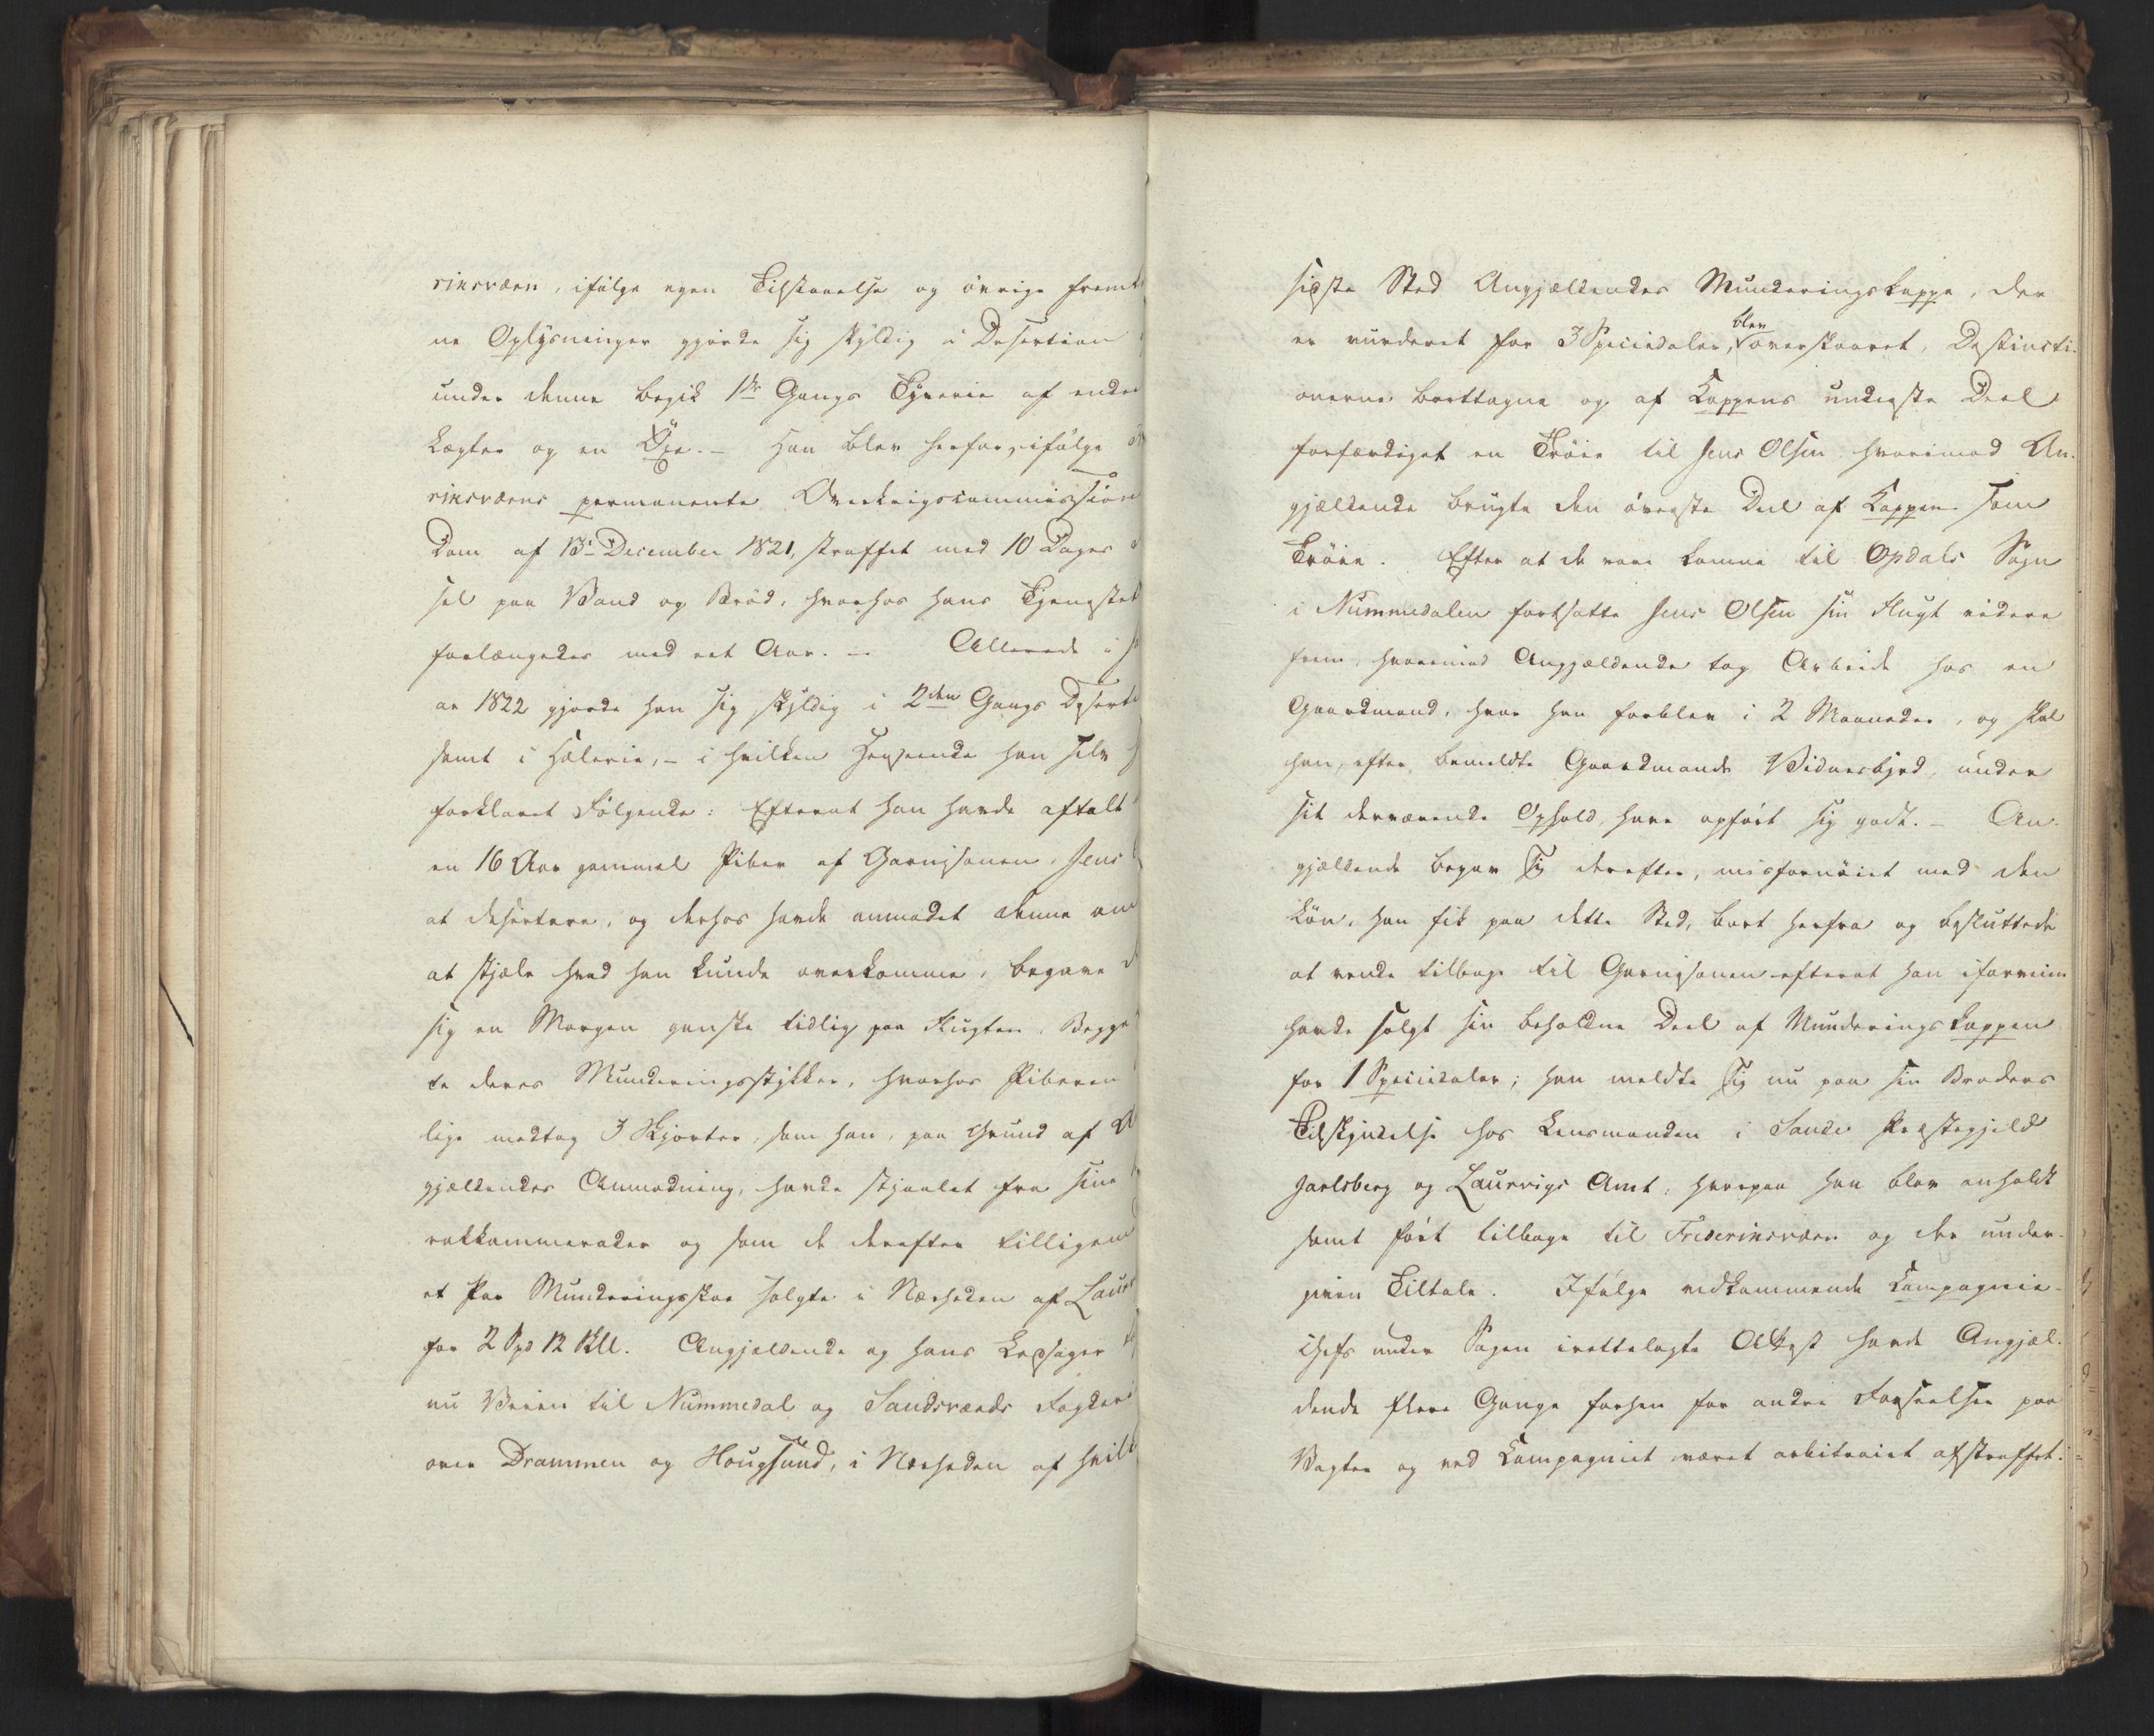 rinsværn, ifølge egen Tilstaaelse og øvrige fremk
ne Oplysninger gjorde sig skyldig i Desertion
under denne begik 1ste Gangs Tyverie af
og en Øxe. – Han blev herfor, ifølge
rinsværns permanente Overkrigscommissions
Dom af 13de December 1821, straffet med 10 Dages
sel paa Vand og Brød, hvorhos hans Tjenestetid
forlængedes med eet Aar. – Allerede i
ar 1822 gjorde han sig skyldig i 2den Gangs Deserti
samt i Hælerie, – i hvilken Henseende han selv
forklaret Følgende: Efterat han havde aftalt
en 16 Aar gammel Piber af Garnisonen, Jens
at desertere, og derhos havde anmodet denne om
at stjæle hvad han kunde overkomme, begave
sig en Morgen ganske tidlig paa Flugten. Begge
te deres Munderingsstykker, hvorhos Piberen
lige medtog 3 Skjorter, som han, paa Grund af
gjældendes Anmodning, havde stjaalet fra sine
votkammerader og som de derefter tilligem
et Par Munderingsskoe solgte i Nærheden af Laur
for 2 Spd 12 Sll. Angjældende og hans Ledsager
nu Veien til Nummedal og Sandsværds Fogderi
over Drammen og Hougsund, i Nærheden af hvilk
sidste Sted Angjældendes Munderingskappe, der
er vurderet for 3 Speciedaler, blev overskaaret, Distincti-
onerne borttagne og af Kappens underste Deel
forfærdiget en Trøie til Jens Olsen hvorimod An-
gjældende brugte den øverste Deel af Kappen som
Trøie. Efter at de vare komne til Opdals Sogn
i Nummedalen fortsatte Jens Olsen sin Flugt videre
frem, hvorimod Angjældende tog Arbeide hos en
Gaardmand, hvor han forblev i 2 Maaneder, og skal
han, efter bemeldte Gaardmands Vidnesbyrd, under
sit derværende Ophold, have opført sig godt. – An-
gjældende begav sig derefter, misfornøiet med den
Løn, han fik paa dette Sted, bort herfra og besluttede
at vende tilbage til Garnisonen efterat han iforveien
havde solgt sin beholdne Deel af Munderingskappen
for 1 Speciedaler; han meldte sig nu paa sin Broders
Tilskyndelse hos Lensmanden i Sande Præstegjeld
Jarlsberg og Laurvigs Amt, hvorpaa han blev anholdt
samt ført tilbage til Friderinsværn og der under-
given Tiltale. Ifølge vedkommende Compagnie-
chefs under Sagen irettelagte Attest havde Angjæl-
dende flere Gange forhen for andre Forseelser paa
Vagten og ved Compagniet været arbitrairt afstraffet.